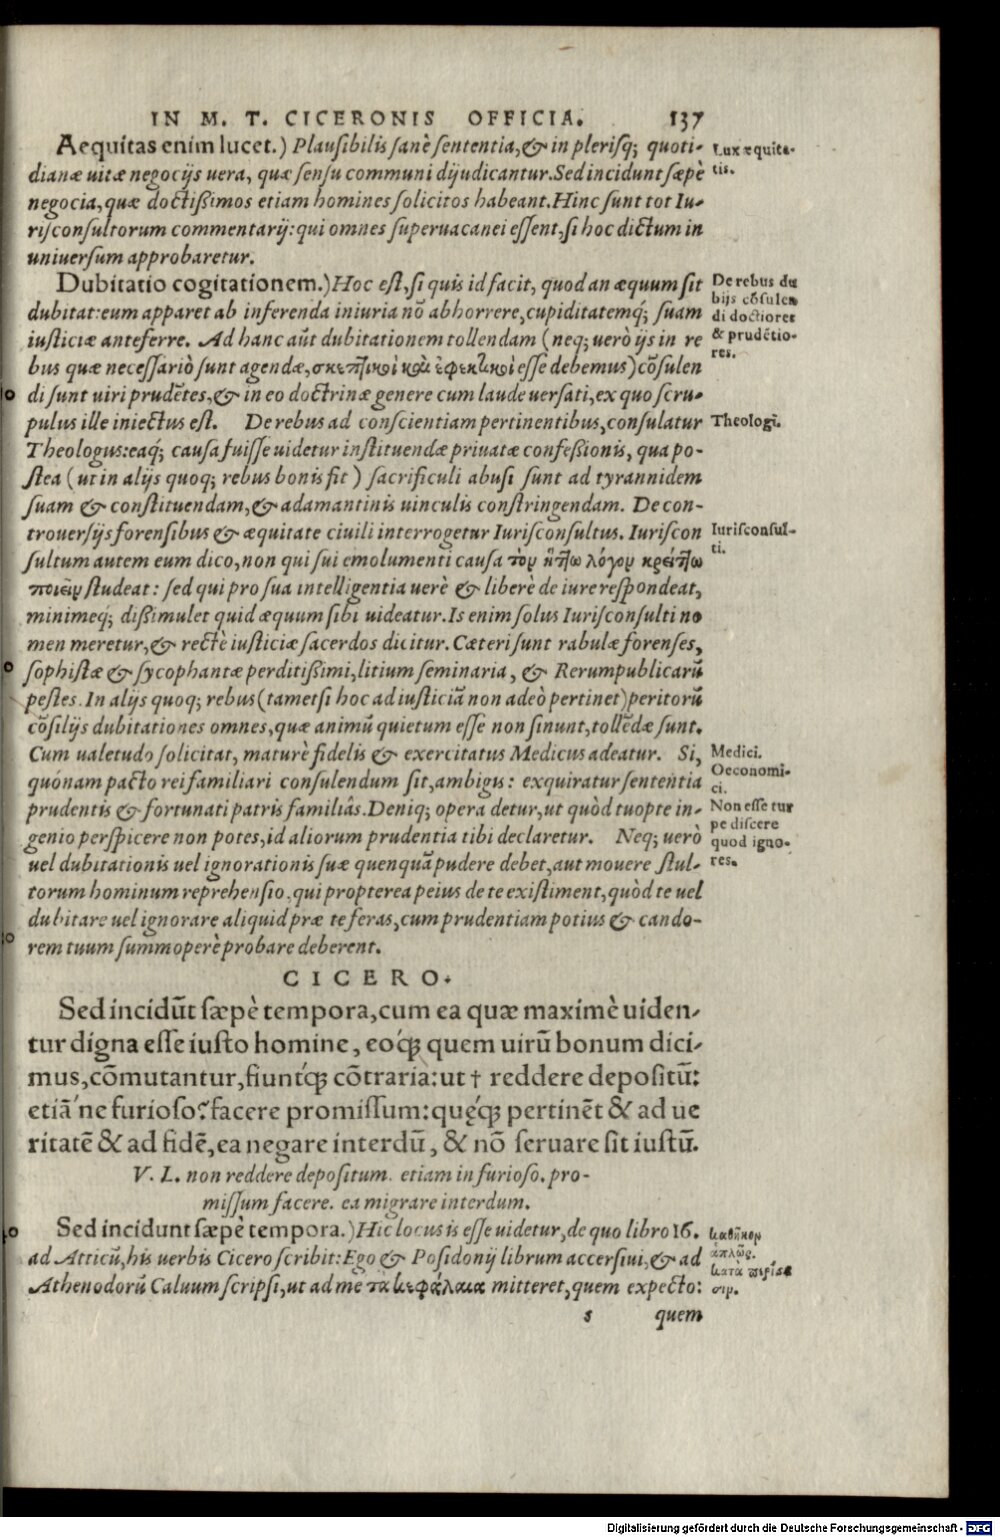 IN M. T. CICERONIS OFFICIA. 137
Aequitas enim lucet.) Plausibilis sanè sententia, & in plerisq; quoti-
dianæ uitæ negocijs uera, quæ sensu communi dijudicantur. Sed incidunt sæpè
negocia, quæ doctißimos etiam homines solicitos habeant. Hinc sunt tot Iu-
risconsultorum commentarij: qui omnes superuacanei essent, si hoc dictum in
uniuersum approbaretur.
Lux æquita-
tis.
Dubitatio cogitationem.) Hoc est, si quis id facit, quod an æquum sit
dubitat: eum apparet ab inferenda iniuria nō abhorrere, cupiditatemq́; suam
iusticiæ anteferre. Ad hanc aūt dubitationem tollendam (neq; uerò ijs in re
bus quæ necessariò sunt agendæ, σκεπτικοὶ καὶ ἐφεκτικοὶ esse debemus) cōsulen
di sunt uiri prudētes, & in eo doctrinæ genere cum laude uersati, ex quo scru-
pulus ille iniectus est. De rebus ad conscientiam pertinentibus, consulatur
Theologus: eaq́; causa fuisse uidetur instituendæ priuatæ confeßionis, qua po-
stea (ut in alijs quoq; rebus bonis fit) sacrificuli abusi sunt ad tyrannidem
suam & constituendam, & adamantinis uinculis constringendam. De con-
trouersijs forensibus & æquitate ciuili interrogetur Iurisconsultus. Iuriscon
sultum autem eum dico, non qui sui emolumenti causa τὸν ἥττω λόγον κρείττω
ποιεῖν studeat: sed qui pro sua intelligentia uerè & liberè de iure respondeat,
minimeq́; dißimulet quid æquum sibi uideatur. Is enim solus Iurisconsulti no
men meretur, & rectè iusticiæ sacerdos dicitur. Cæteri sunt rabulæ forenses,
sophistæ & sycophantæ perditißimi, litium seminaria, & Rerumpublicarū
pestes. In alijs quoq; rebus (tametsi hoc ad iusticiā non adeò pertinet) peritorū
cōsilijs dubitationes omnes, quæ animū quietum esse non sinunt, tollēdæ sunt.
Cum ualetudo solicitat, maturè fidelis & exercitatus Medicus adeatur. Si,
quónam pacto rei familiari consulendum sit, ambigis: exquiratur sententia
prudentis & fortunati patris familiâs. Deniq; opera detur, ut quòd tuopte in-
genio perspicere non potes, id aliorum prudentia tibi declaretur. Neq; uerò
uel dubitationis uel ignorationis suæ quenquā pudere debet, aut mouere stul-
torum hominum reprehensio, qui propterea peius de te existiment, quòd te uel
dubitare uel ignorare aliquid præ te feras, cum prudentiam potius & cando-
rem tuum summopere probare deberent.
De rebus du
bijs cōsulen
di doctiores
& prudētio-
res.
Theologi.
Iurisconsul-
ti.
Medici.
Oeconomi-
ci.
Non esse tur
pe discere
quod igno-
res.
CICERO.
Sed incidūt sæpè tempora, cum ea quæ maximè uiden-
tur digna esse iusto homine, eoq́; quem uirū bonum dici-
mus, cōmutantur, fiuntq́; cōtraria: ut † reddere depositū:
etiā ne furioso? facere promissum: quęq́; pertinēt & ad ue
ritatē & ad fidē, ea negare interdū, & nō seruare sit iustū.
V. L. non reddere depositum. etiam in furioso. pro-
missum facere. ea migrare interdum.
Sed incidunt sæpè tempora.) Hic locus is esse uidetur, de quo libro 16.
ad Atticū, his uerbis Cicero scribit: Ego & Posidonij librum accersiui, & ad
Athenodorū Caluum scripsi, ut ad me τὰ κεφάλαια mitteret, quem expecto:
καθῆκον
ἁπλῶς.
κατὰ περίστα
σιν.
s quem
Digitalisierung gefördert durch die Deutsche Forschungsgemeinschaft - DFG